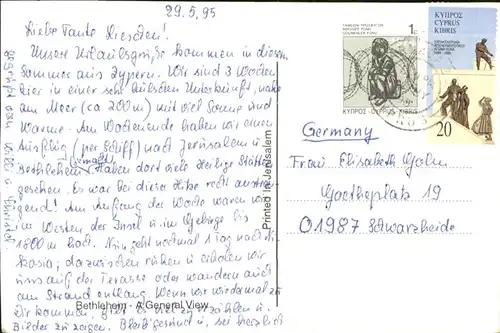 29.5.95
Liebe Tante Lieschen!
Unsere Urlaubsgrüße kommen in diesem
Sommer aus Zypern. Wir sind 3 Wochen
hier in einer sehr hübschen Unterkunft, nahe
am Meer (ca 200 m) mit viel Sonne und
Wärme. Am Wochenende haben wir einen
Ausflug (per Schiff) nach Jerusalem u.
Bethlehem gemacht (haben dort viele Heilige Stätten
gesehen. Es war bei dieser Hitze recht anstren-
gend! Am Anfang der Woche waren wir
im Westen der Insel u. im Gebirge bis
1800 m hoch. Nun geht nochmal 1 Tag nach
; dazwischen ruhen u. erholen wir
uns auf der Terasse oder wandern auch
am Strand entlang. Wenn wir wiedermal zu
Dir kommen, gibt es viel zu erzählen u.
Bilder zu zeigen. Bleib gesund u. sei herzlich
gegrüßt von
Bethlehem - A General View
Printed in Jerusalem
1c
ΚΥΠΡΟΣ - CYPRUS KIBRIS
ΚΥΠΡΟΣ
CYPRUS
KIBRIS
20
Germany
Frau Elisabeth
Goetheplatz 19
01987 Schwarzheide